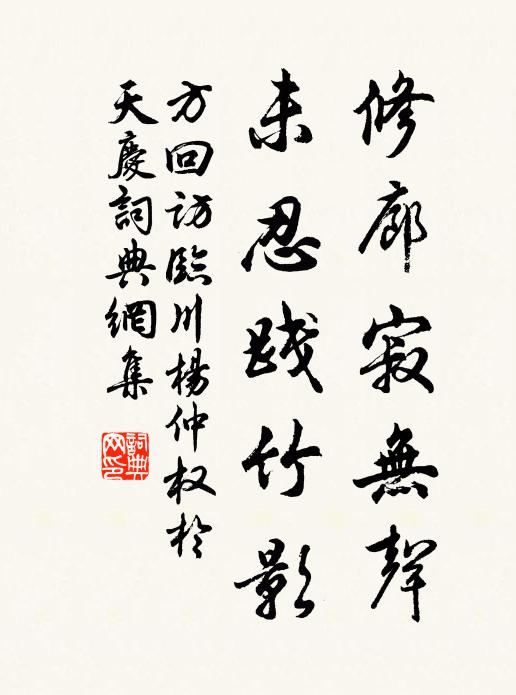 修廊寂無聲
未忍踐竹影
方回訪臨川楊仲权於
天慶詞典網集
詞典
网印